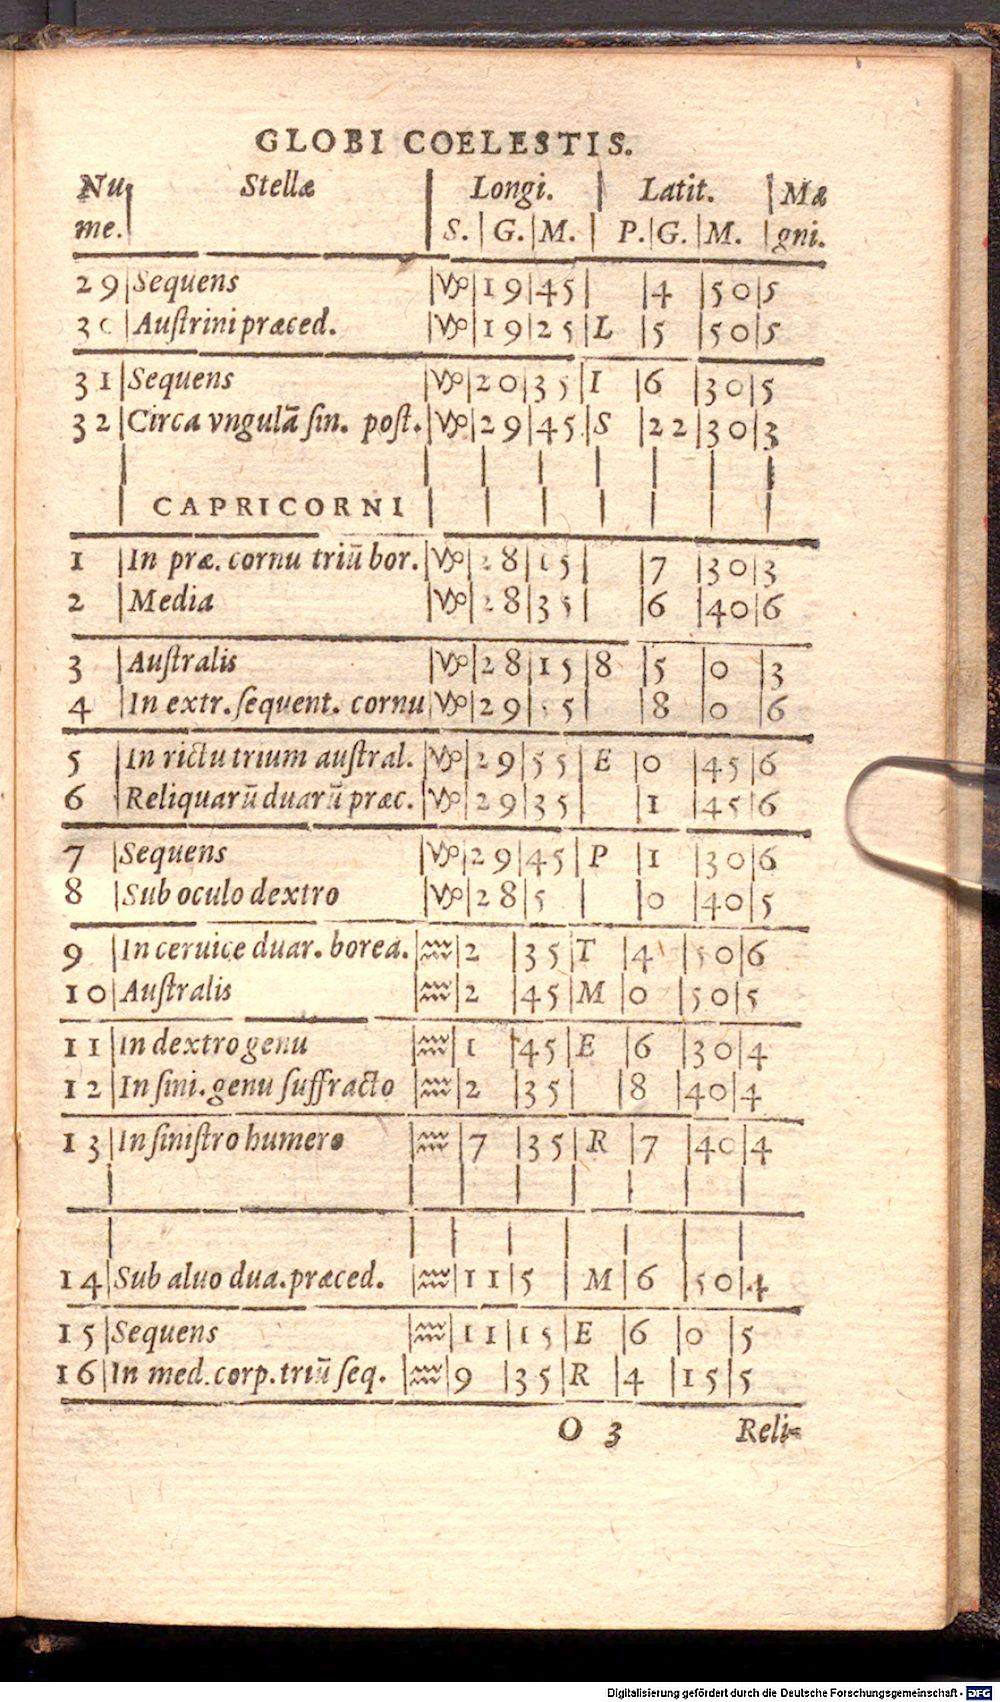 GLOBI COELESTIS.
Nu Stellæ Longi. Latit. Mæ
me. S. G. M. P. G. M. gni.
29 Sequens ♑ 19 45 4 50 5
30 Auſtrini præced. ♑ 19 25 L 5 50 5
31 Sequens ♑ 20 35 I 6 30 5
32 Circa vngulā ſin. poſt. ♑ 29 45 S 22 30 3
CAPRICORNI
1 In præ. cornu triū bor. ♑ 28 15 7 30 3
2 Media ♑ 28 35 6 40 6
3 Auſtralis ♑ 28 15 8 5 0 3
4 In extr. ſequent. cornu ♑ 29 5 8 0 6
5 In rictu trium auſtral. ♑ 29 55 E 0 45 6
6 Reliquarū duarū præc. ♑ 29 35 1 45 6
7 Sequens ♑ 29 45 P 1 30 6
8 Sub oculo dextro ♑ 28 5 0 40 5
9 In ceruice duar. borea. ♒ 2 35 T 4 50 6
10 Auſtralis ♒ 2 45 M 0 50 5
11 In dextro genu ♒ 1 45 E 6 30 4
12 In ſini. genu ſuffracto ♒ 2 35 8 40 4
13 In ſiniſtro humero ♒ 7 35 R 7 40 4
14 Sub aluo dua. præced. ♒ 11 5 M 6 50 4
15 Sequens ♒ 11 15 E 6 0 5
16 In med. corp. triū ſeq. ♒ 9 35 R 4 15 5
O 3 Reli=
Digitalisierung gefördert durch die Deutsche Forschungsgemeinschaft - DFG